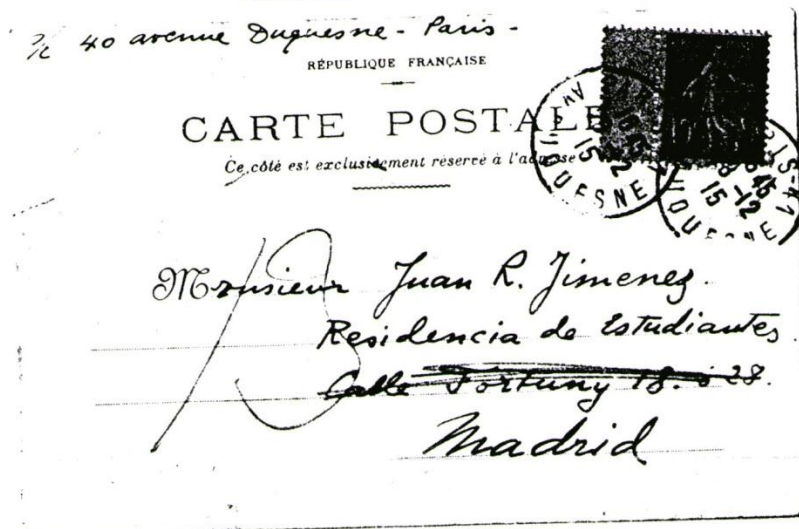 40 avenue Duquesne - Paris -
RÉPUBLIQUE FRANÇAISE
CARTE POSTALE
Ce côté est exclusivement réservé à l'adresse
AV. DUQUESNE
15 12
PARIS-41
45
15-12
DUQUESNE
Monsieur Juan R. Jimenez.
Residencia de Estudiantes
Calle Fortuny 18.
28.
Madrid